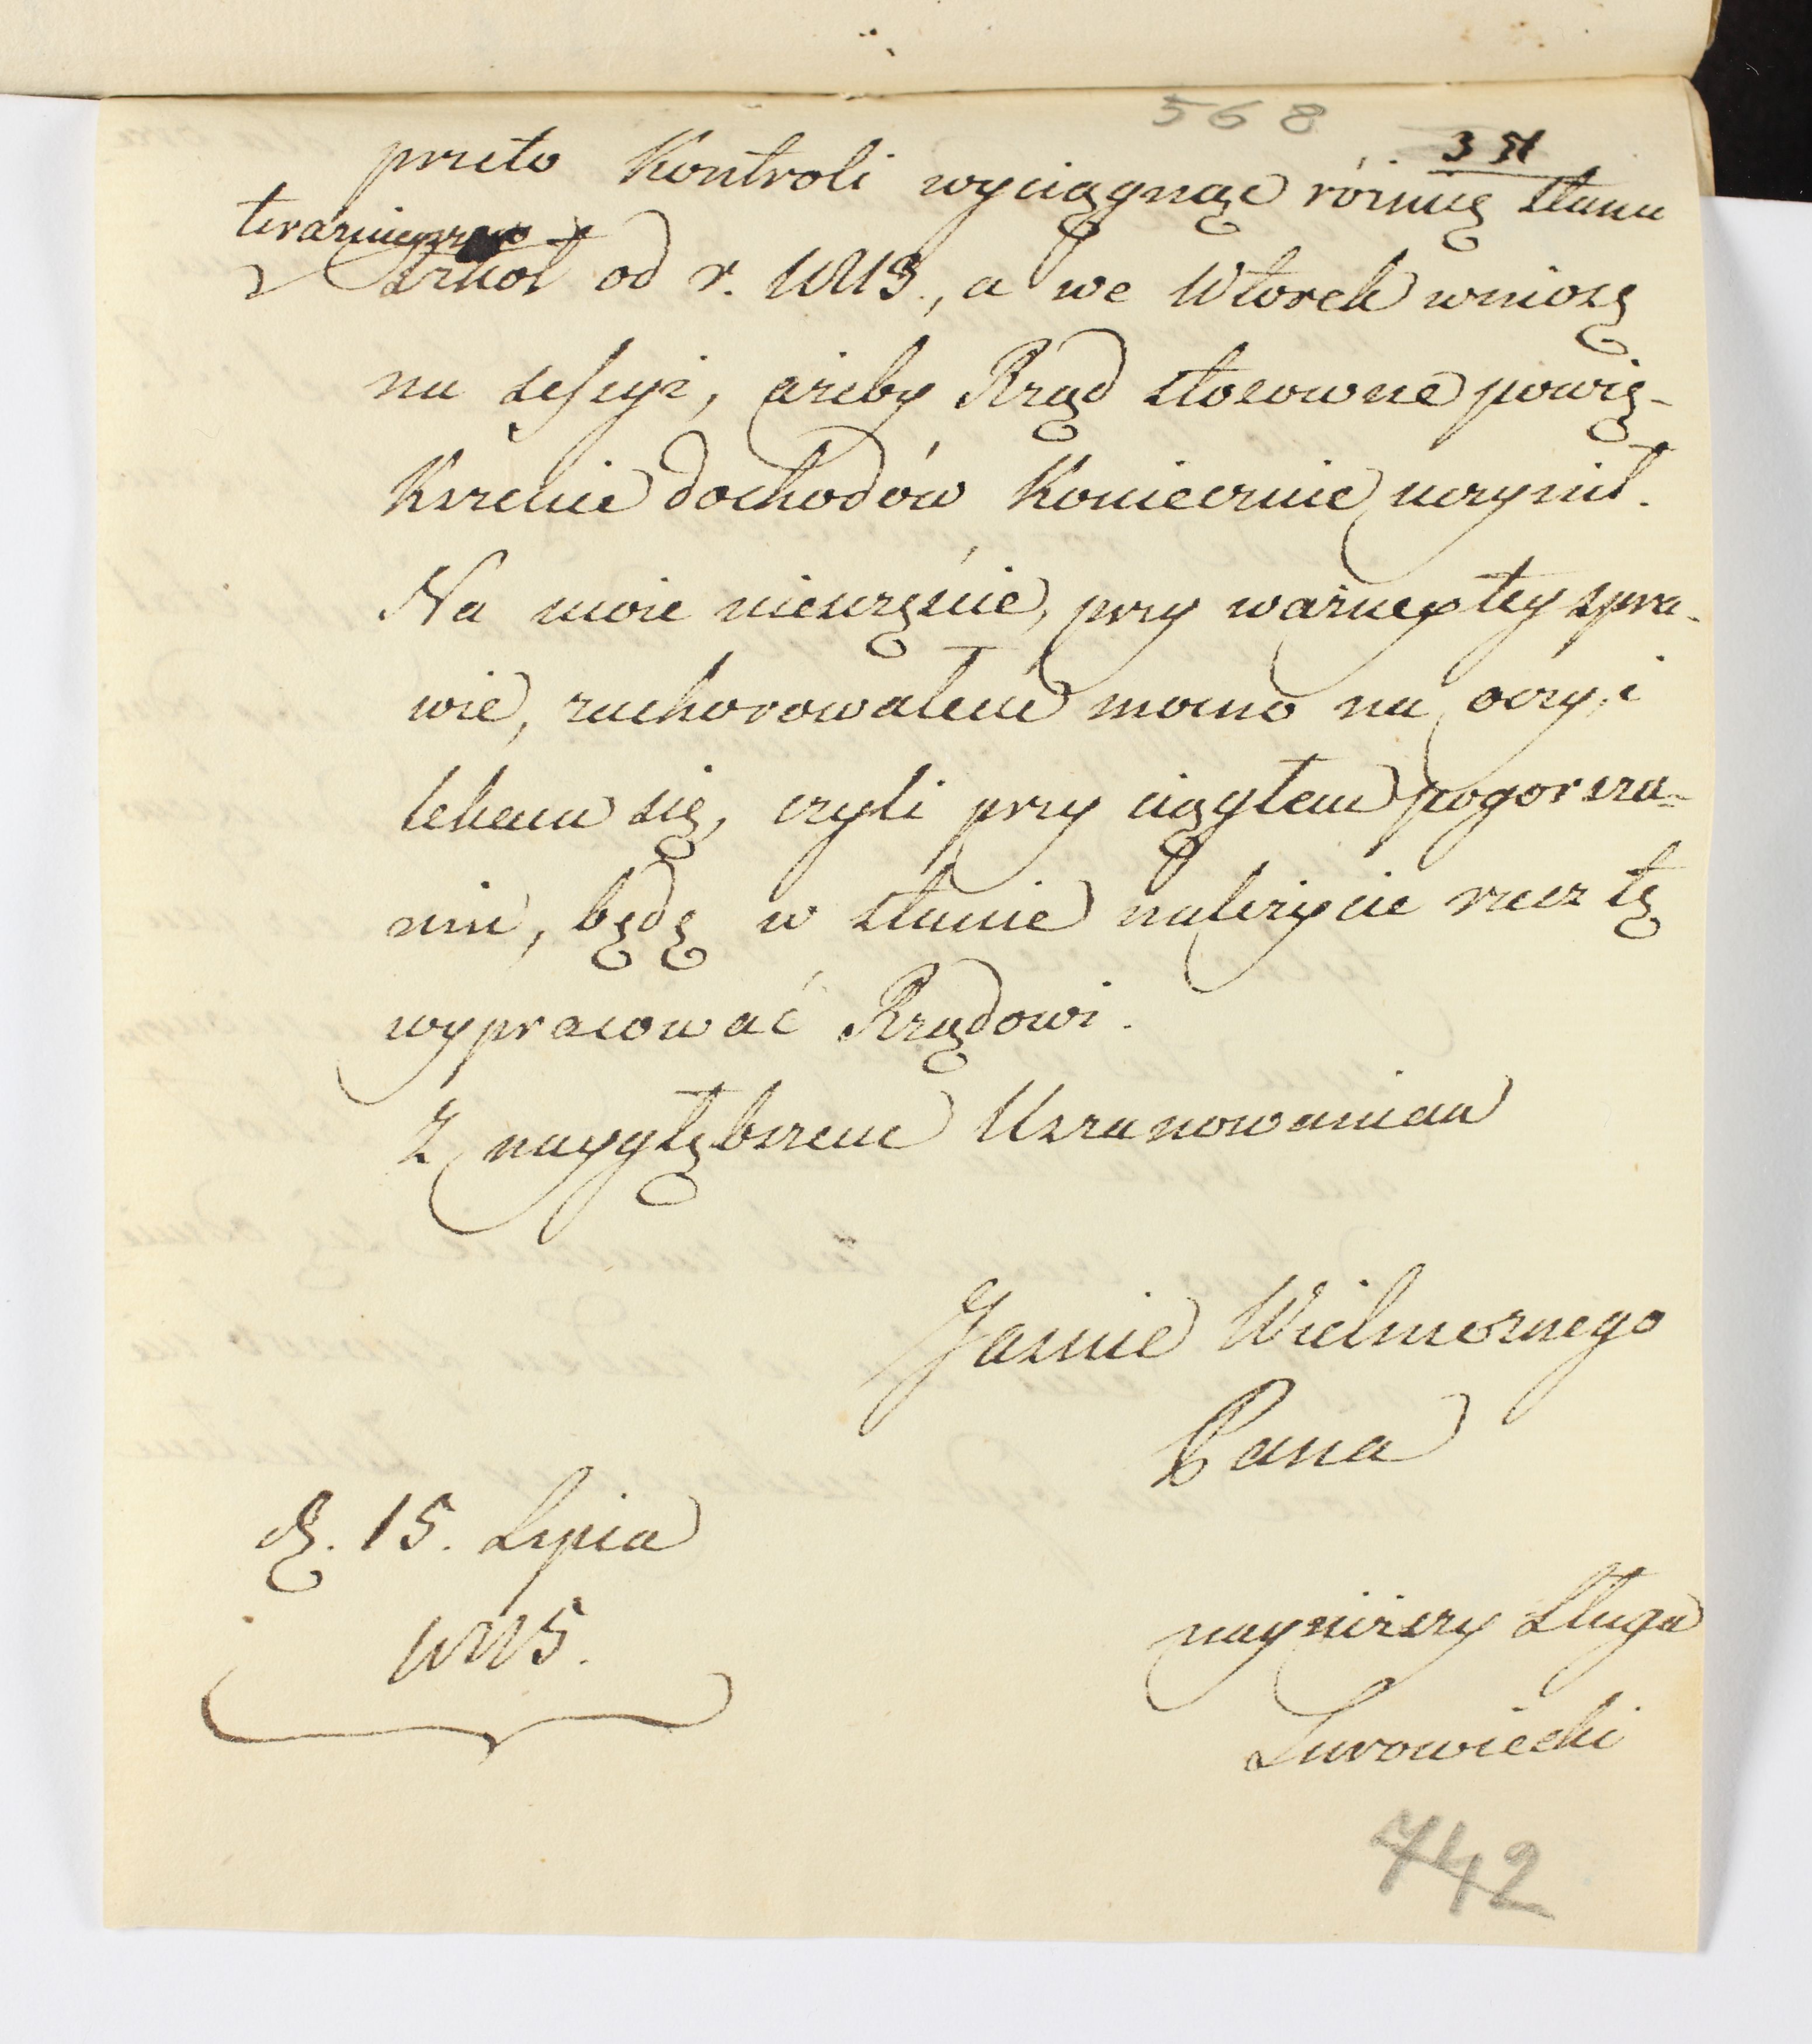 568
przeto Kontroli wyciągnąć różnicę stanu
teraźnieyszego
Szkół od r. 1813., a we Wtorek wniosę
na sessyi, ażeby Rząd stosowne powię-
kszenie dochodów koniecznie uczynił.
Na moie nieszczęście, przy ważney tey spra-
wie, zachorowałem mocno na oczy, i
lękam się, czyli przy ciągłem pogorsza-
niu, będę w stanie należycie rzecz tę
wypracować Rządowi.
Z naygłębszem Uszanowaniem
Jaśnie Wielmożnego
Pana
d. 15. Lipca
1815.
nayniższy Sługa
Surowiecki
742